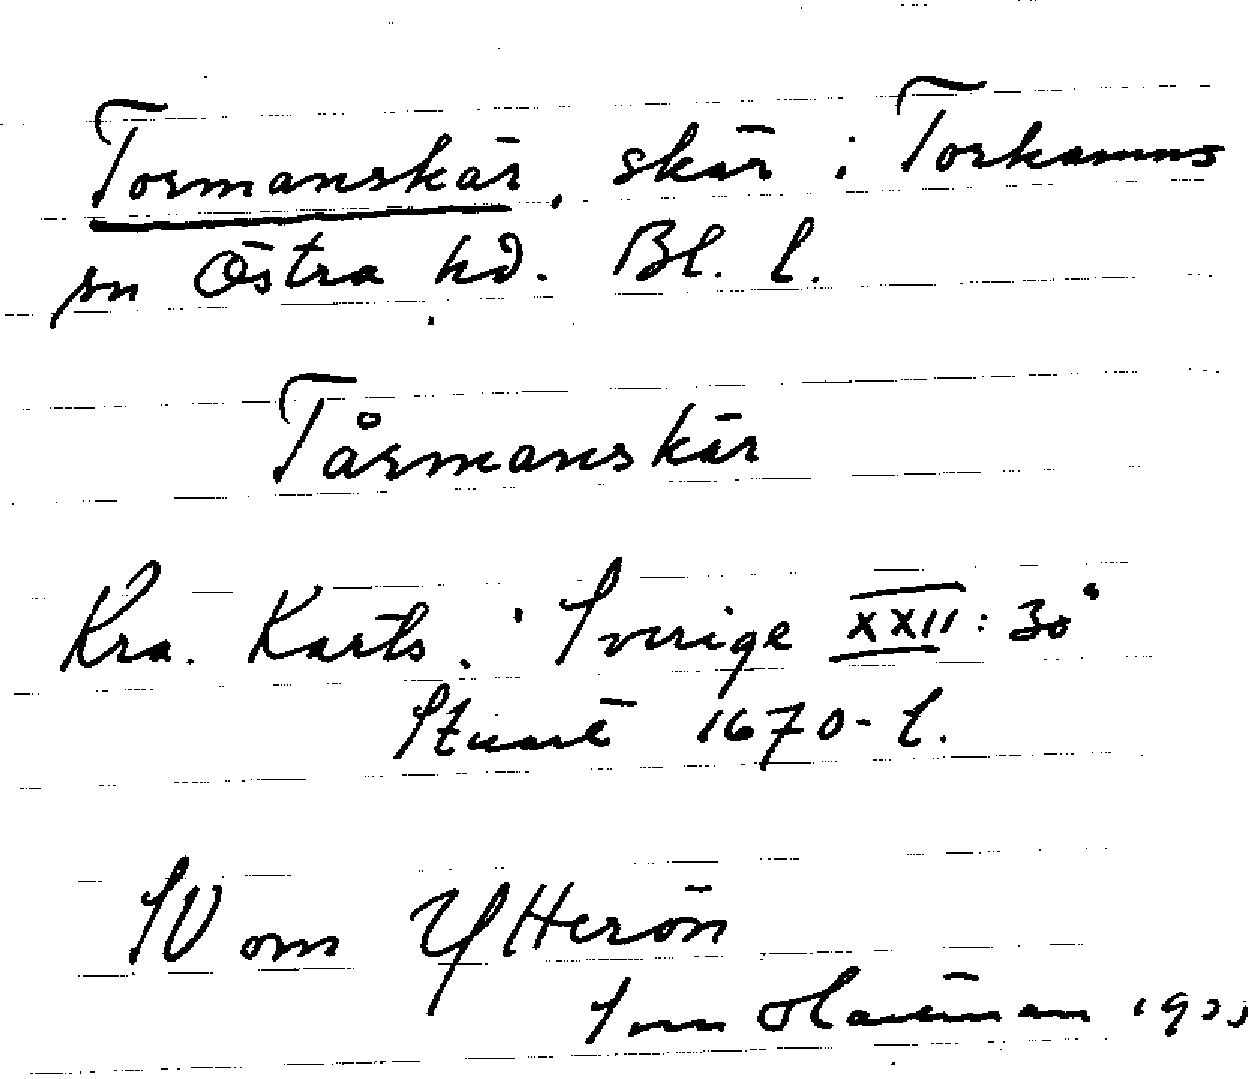 Tormanskär, skär i Torhamns
sn Östra hd. Bl. l.
Tårmanskär
Kra. Kartv. Sverige XXII: 30
Stuart 1670-t.
SV om Ytterön